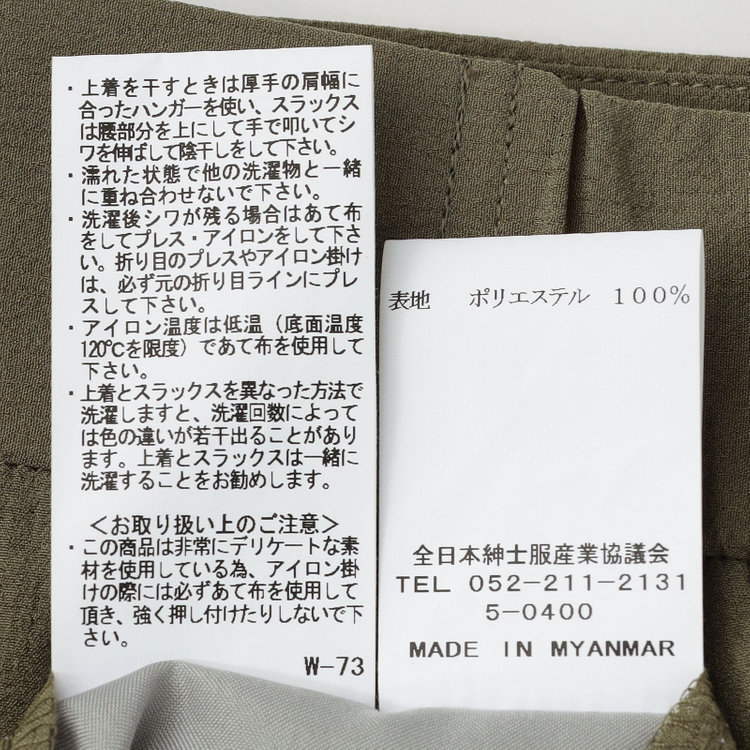 ・上着を干すときは厚手の肩幅に
合ったハンガーを使い、スラックス
は腰部分を上にして手で叩いてシ
ワを伸ばして陰干しをして下さい。
・濡れた状態で他の洗濯物と一緒
に重ね合わせないで下さい。
・洗濯後シワが残る場合はあて布
をしてプレス・アイロンをして下さ
い。折り目のプレスやアイロン掛け
は、必ず元の折り目ラインにプレ
スして下さい。
・アイロン温度は低温（底面温度
120℃を限度）であて布を使用して
下さい。
・上着とスラックスを異なった方法で
洗濯しますと、洗濯回数によって
は色の違いが若干出ることがあり
ます。上着とスラックスは一緒に
洗濯することをお勧めします。
＜お取り扱い上のご注意＞
・この商品は非常にデリケートな素
材を使用している為、アイロン掛
けの際には必ずあて布を使用して
頂き、強く押し付けたりしないで下
さい。
W-73
表地 ポリエステル 100%
全日本紳士服産業協議会
TEL 052-211-2131
5-0400
MADE IN MYANMAR